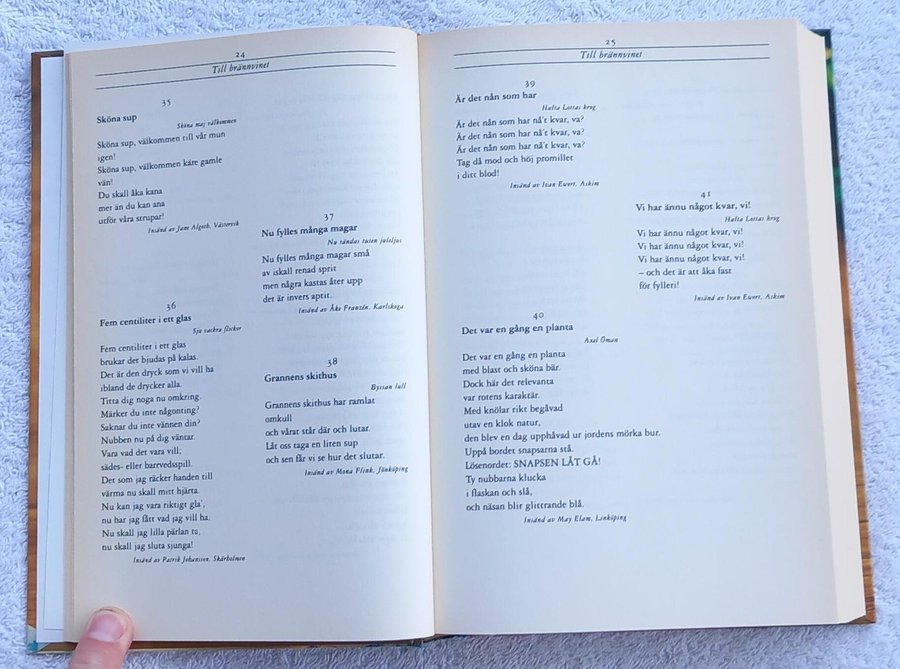 24
Till brännvinet
35
Sköna sup
Sköna maj välkommen
Sköna sup, välkommen till vår mun
igen!
Sköna sup, välkommen käre gamle
vän!
Du skall åka kana
mer än du kan ana
utför våra strupar!
Insänd av Jane Algoth, Västervik
36
Fem centiliter i ett glas
Sju vackra flickor
Fem centiliter i ett glas
brukar det bjudas på kalas.
Det är den dryck som vi vill ha
ibland de drycker alla.
Titta dig noga nu omkring.
Märker du inte någonting?
Saknar du inte vännen din?
Nubben nu på dig väntar.
Vara vad det vara vill;
sädes- eller barvedsspill.
Det som jag räcker handen till
värma nu skall mitt hjärta.
Nu kan jag vara riktigt gla',
nu har jag fått vad jag vill ha.
Nu skall jag lilla pärlan ta,
nu skall jag sluta sjunga!
Insänd av Patrik Johansson, Skärholmen
37
Nu fylles många magar
Nu tändas tusen juleljus
Nu fylles många magar små
av iskall renad sprit
men några kastas åter upp
det är invers aptit.
Insänd av Åke Franzén, Karlskoga
38
Grannens skithus
Byssan lull
Grannens skithus har ramlat
omkull
och vårat står där och lutar.
Låt oss taga en liten sup
och sen får vi se hur det slutar.
Insänd av Mona Flink, Jönköping
25
Till brännvinet
39
Är det nån som har
Halta Lottas krog
Är det nån som har nå't kvar, va?
Är det nån som har nå't kvar, va?
Är det nån som har nå't kvar, va?
Tag då mod och höj promillet
i ditt blod!
Insänd av Ivan Ewert, Askim
40
Det var en gång en planta
Axel Öman
Det var en gång en planta
med blast och sköna bär.
Dock här det relevanta
var rotens karaktär.
Med knölar rikt begåvad
utav en klok natur,
den blev en dag upphåvad ur jordens mörka bur.
Uppå bordet snapsarna stå.
Lösenordet: SNAPSEN LÅT GÅ!
Ty nubbarna klucka
i flaskan och slå,
och näsan blir glittrande blå.
Insänd av May Elam, Linköping
41
Vi har ännu något kvar, vi!
Halta Lottas krog
Vi har ännu något kvar, vi!
Vi har ännu något kvar, vi!
Vi har ännu något kvar, vi!
– och det är att åka fast
för fylleri!
Insänd av Ivan Ewert, Askim